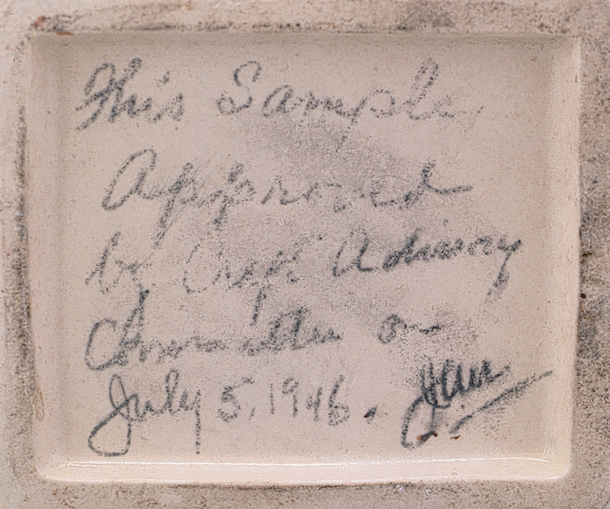 This Sample
Approved
by Dept Advisory
Committee on
July 5, 1946.